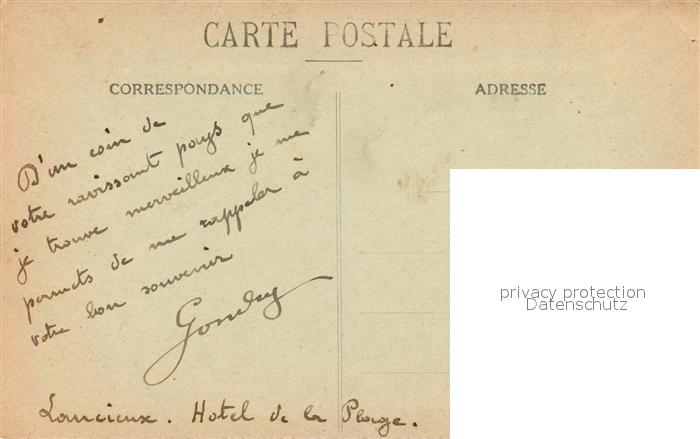 CARTE POSTALE
CORRESPONDANCE
ADRESSE
D'un coin de
votre ravissant pays que
je trouve merveilleux je me
permets de me rappeler à
votre bon souvenir
Lancieux. Hotel de la Plage.
privacy protection
Datenschutz